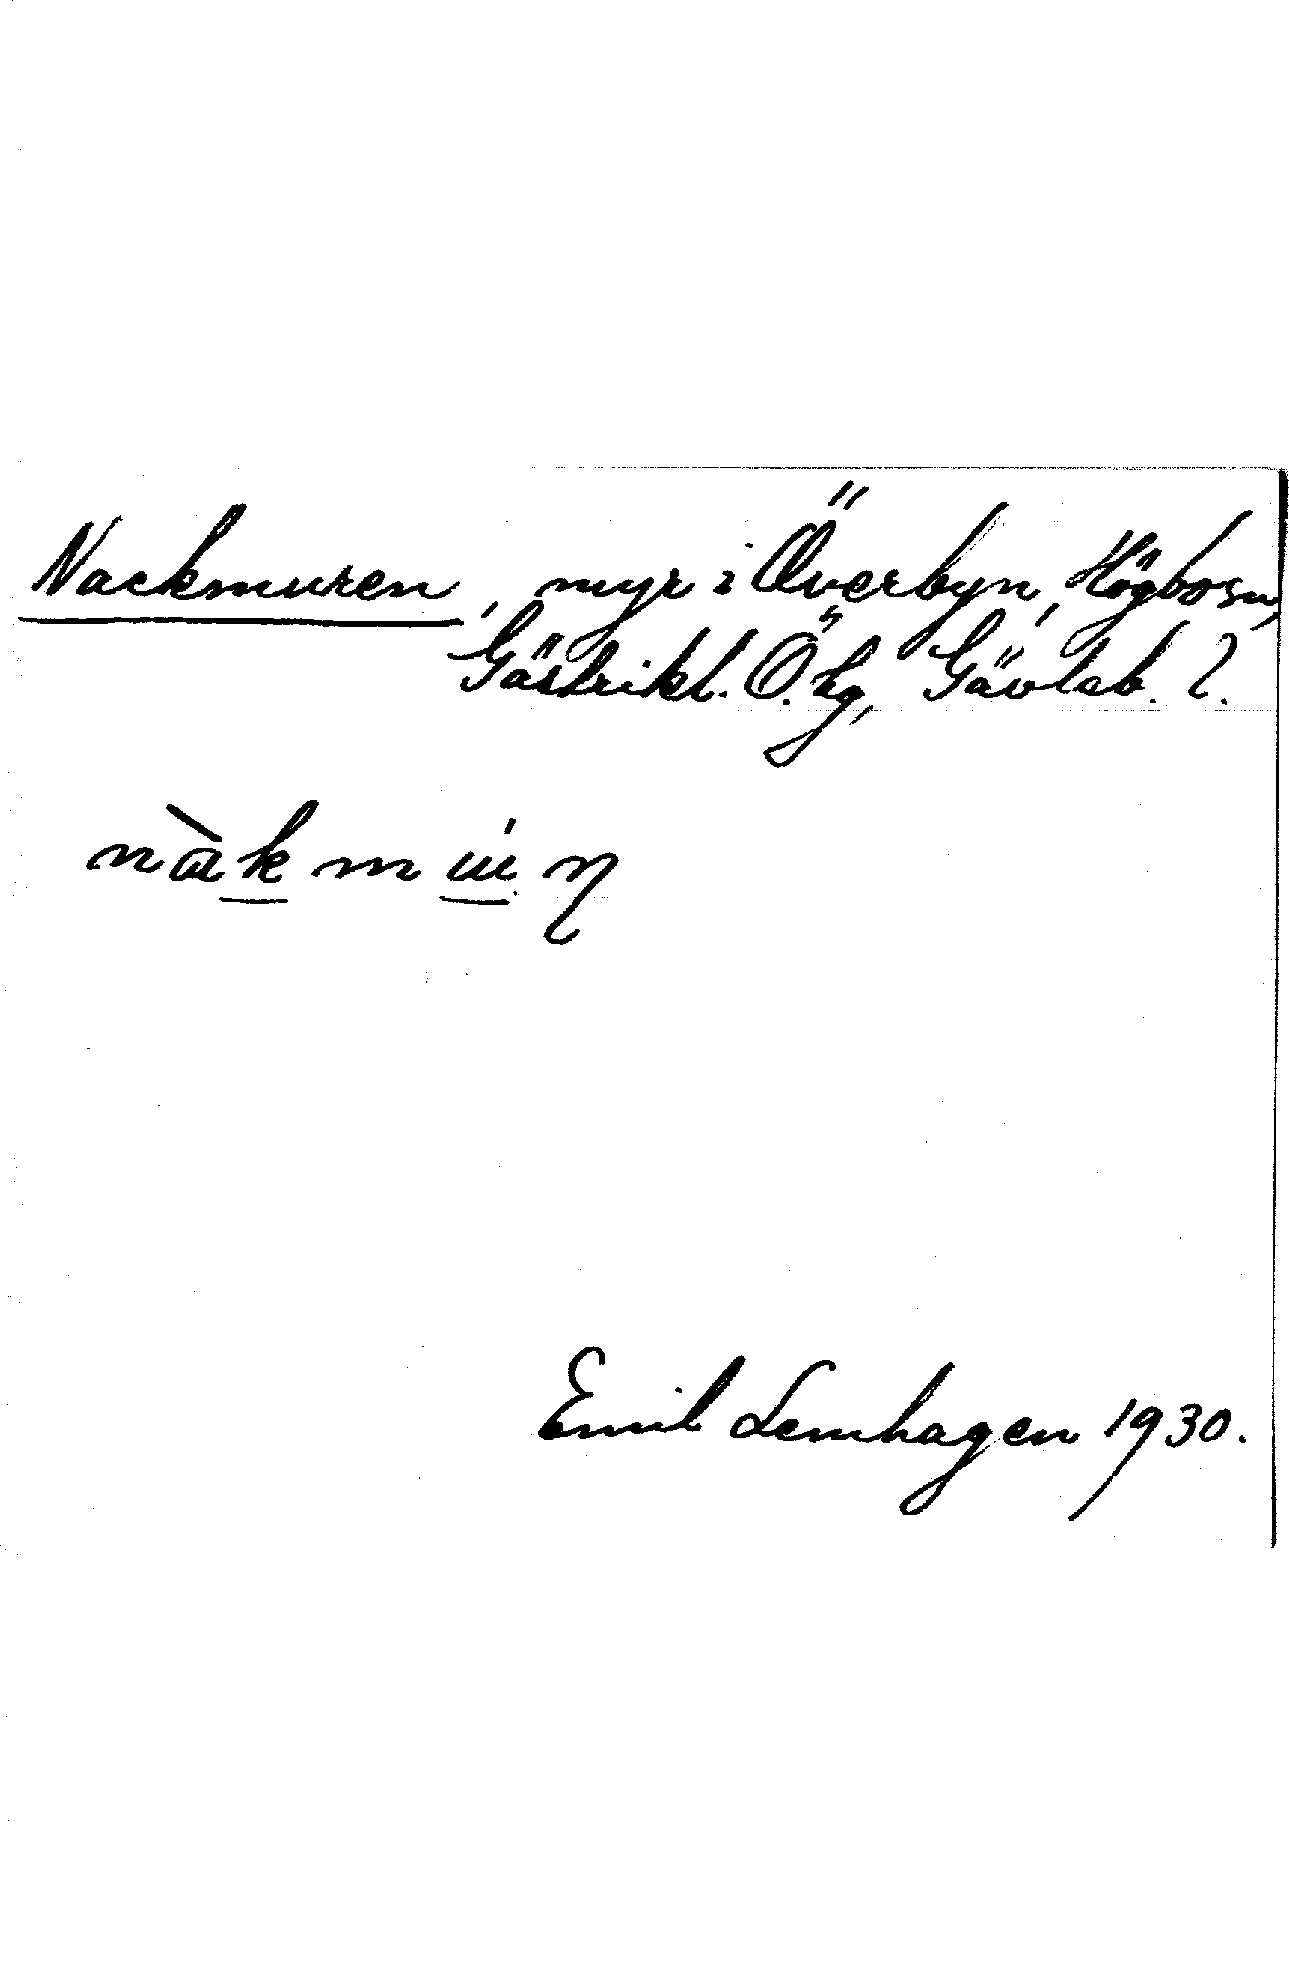 Nackmuren, myr i Överbyn, Högbo sn,
Gästrikl. Ö. hg, Gävleb. l.
nàk múɳ
Emil Lemhagen 1930.